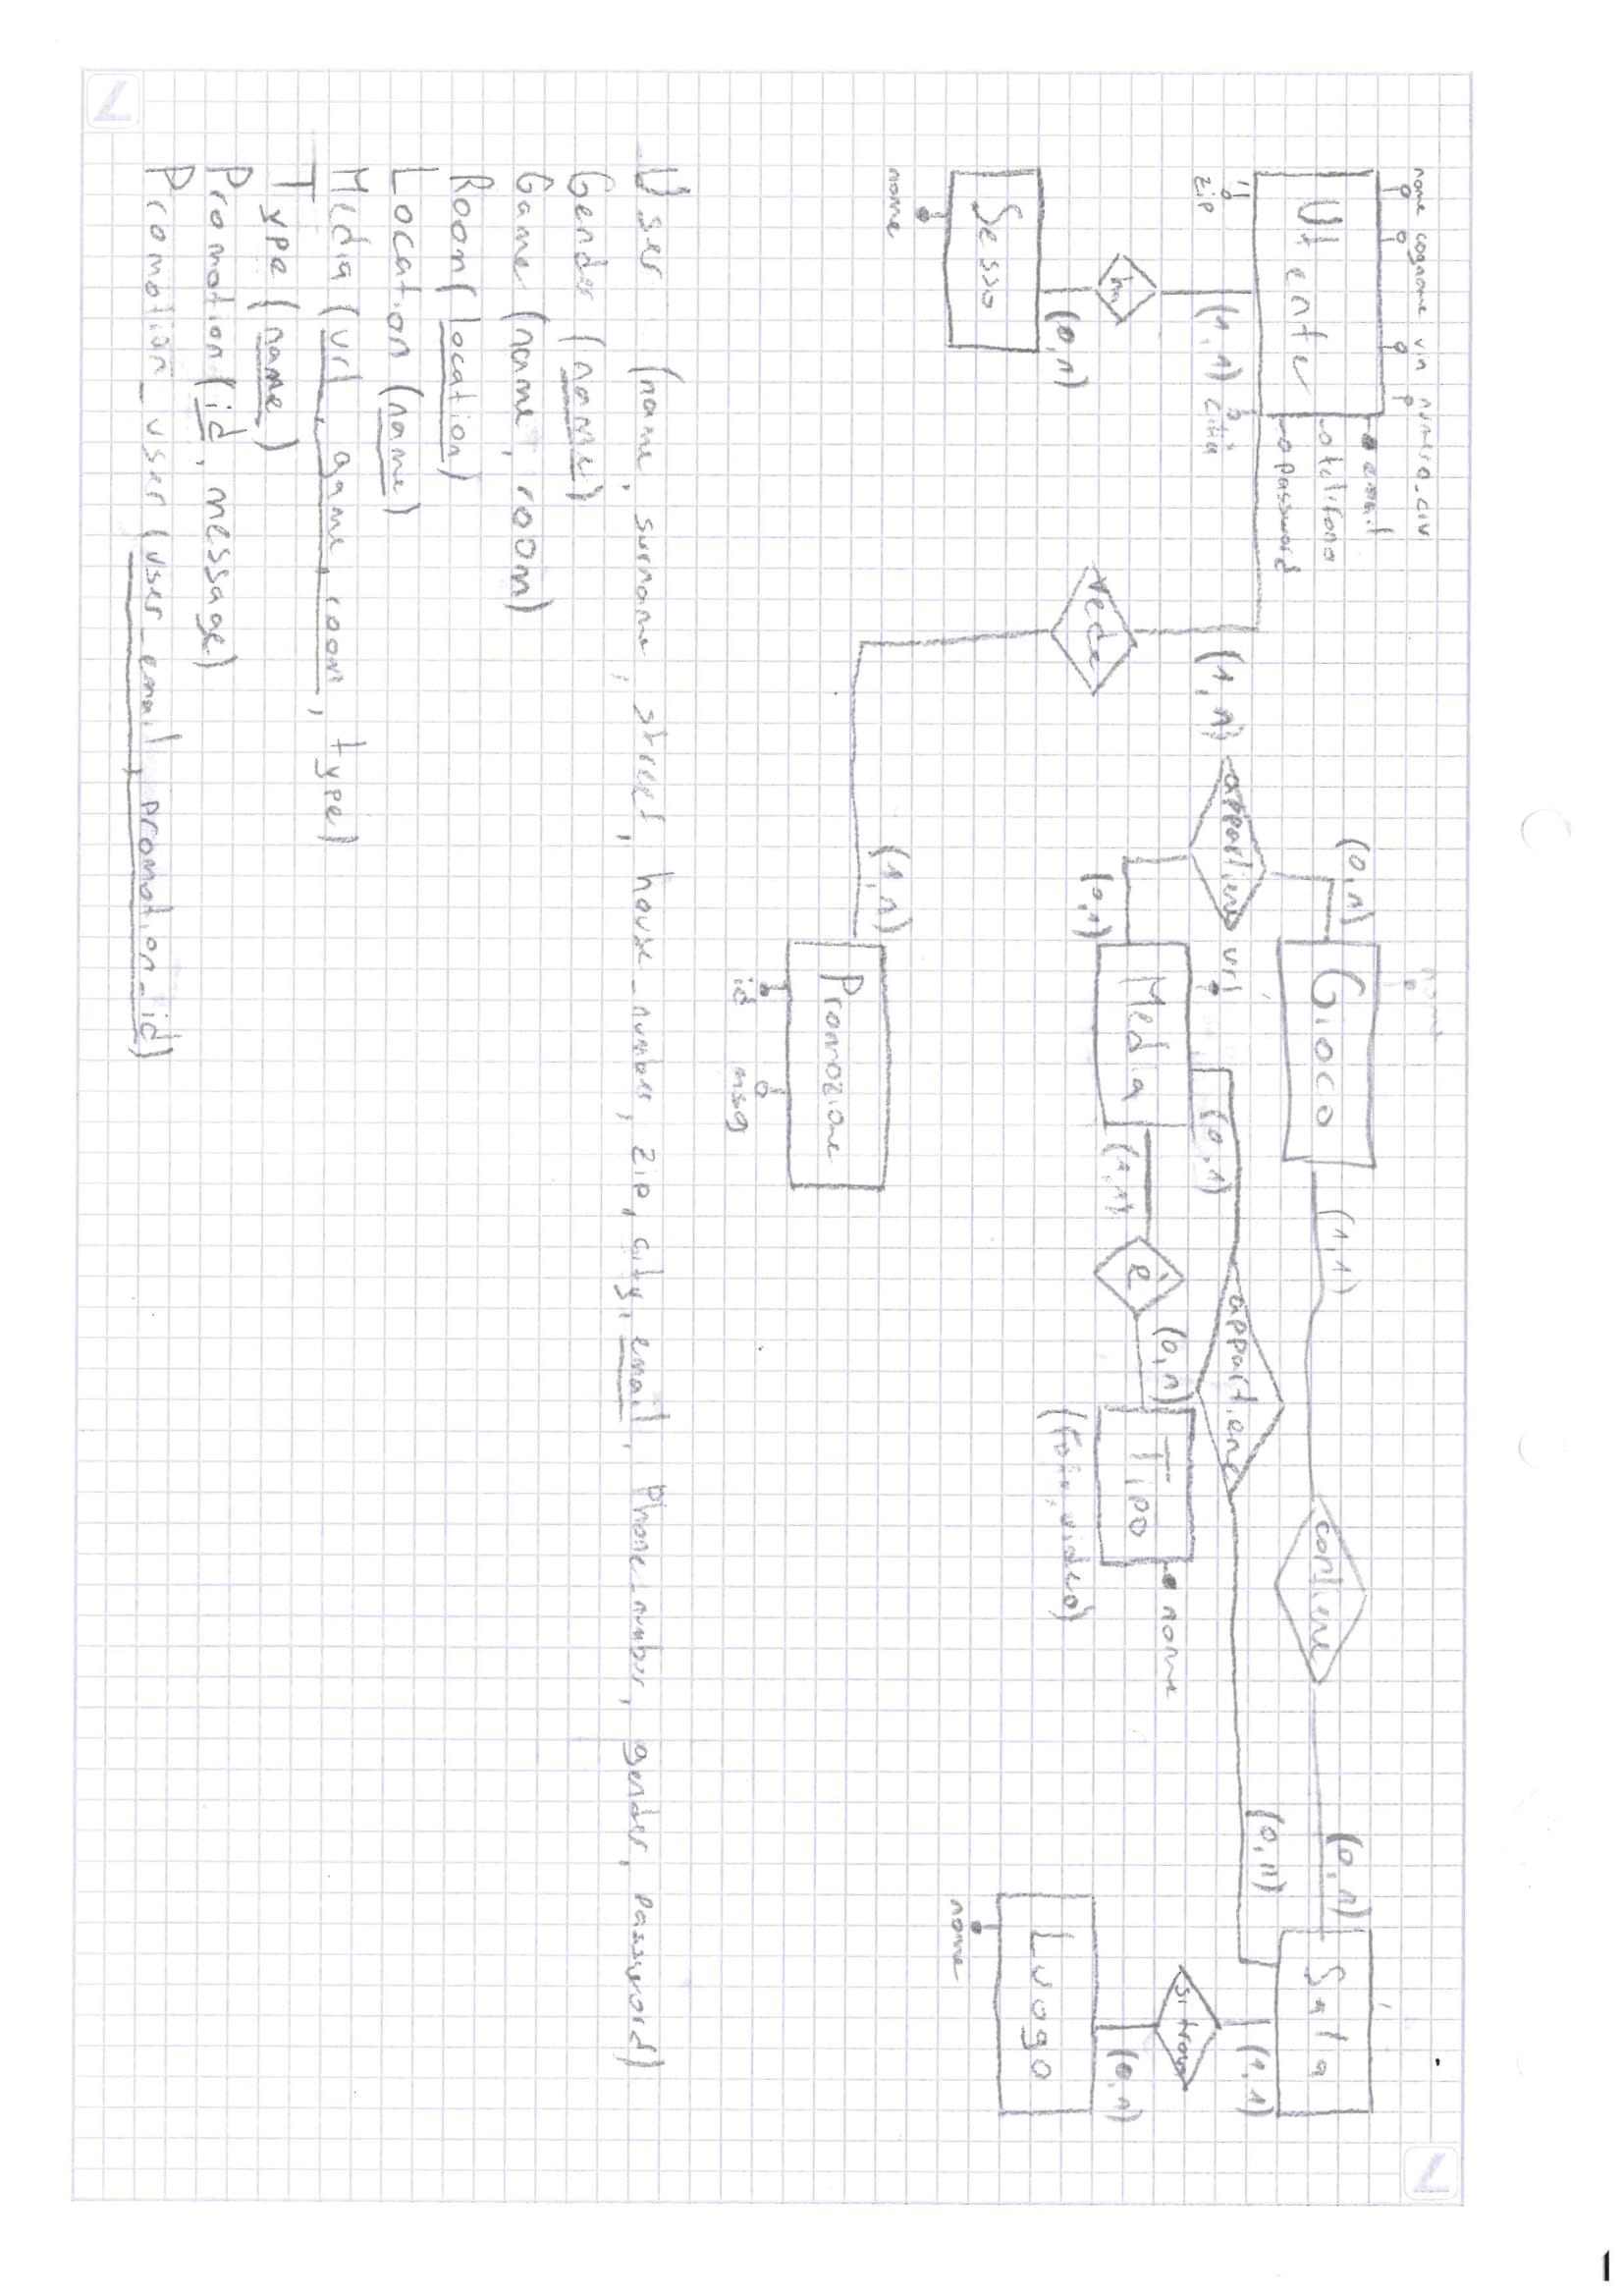 nome cognome via numero_civ
Utente
email
telefono
password
zip
città
(1,1)
ha
(0,n)
Sesso
nome
(1,n)
vede
(1,n)
Promozione
id
msg
nome
Gioco
(0,n)
appartiene
(0,1)
url
Media
(0,1)
(1,1)
è
(0,n)
Tipo
nome
(foto, video)
appartiene
(0,n)
(1,1)
contiene
(0,n)
Sala
(1,1)
si trova
(0,n)
Luogo
nome
User (name, surname, street, house_number, zip, city, email, Phone_number, gender, password)
Gender (name)
Game (name, room)
Room (location)
Location (name)
Media (url, game, room, type)
Type (name)
Promotion (id, message)
Promotion_user (user_email, promotion_id)